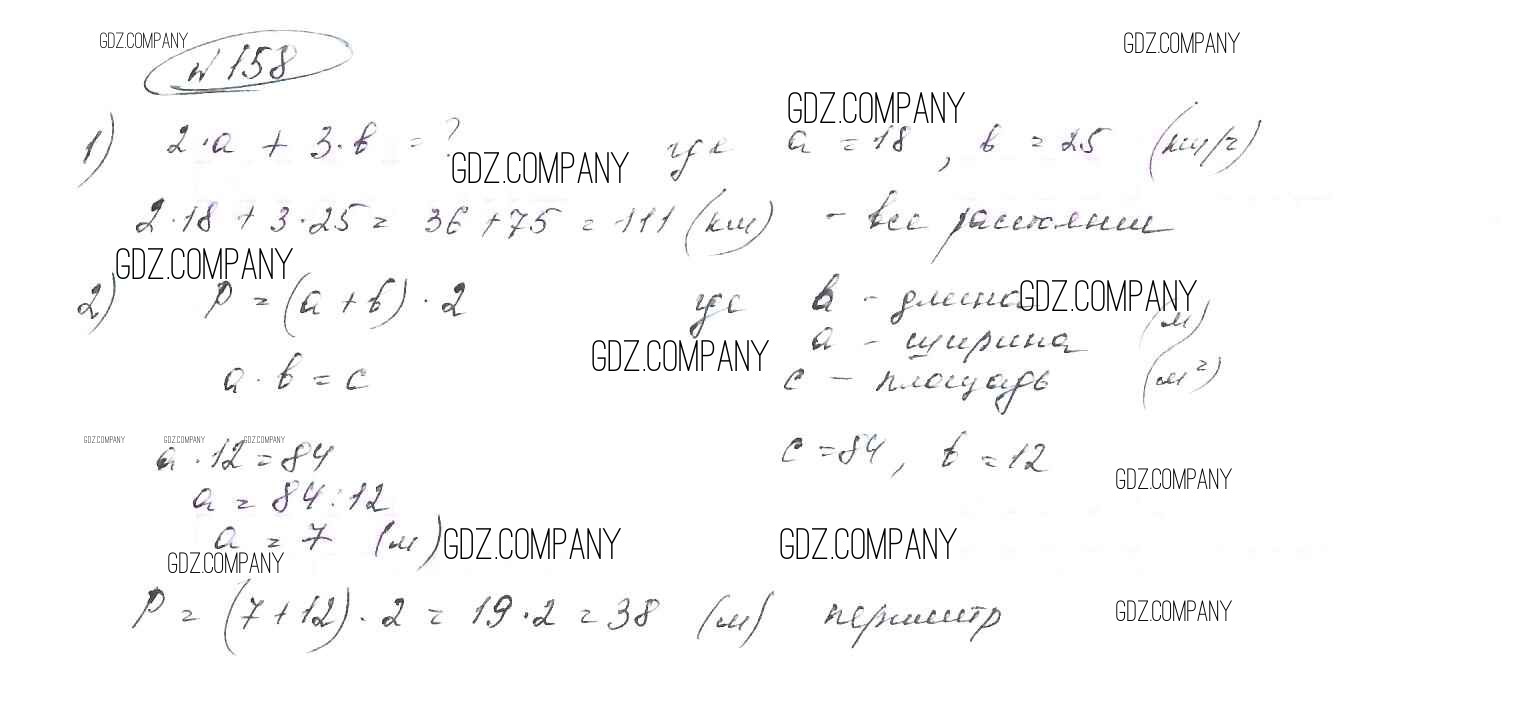 GDZ.COMPANY
GDZ.COMPANY
№ 158
GDZ.COMPANY
1) 2·a + 3·b = ? где a = 18, b = 25 (км/ч)
GDZ.COMPANY
2·18 + 3·25 = 36 + 75 = 111 (км) - все расстояние
GDZ.COMPANY
2) P = (a + b)·2 где b - длина
GDZ.COMPANY
a - ширина (м)
GDZ.COMPANY
a·b = c c - площадь (м²)
GDZ.COMPANY GDZ.COMPANY GDZ.COMPANY
a·12 = 84 c = 84, b = 12
GDZ.COMPANY
a = 84:12
a = 7 (м)
GDZ.COMPANY GDZ.COMPANY
GDZ.COMPANY
P = (7 + 12)·2 = 19·2 = 38 (м) периметр
GDZ.COMPANY